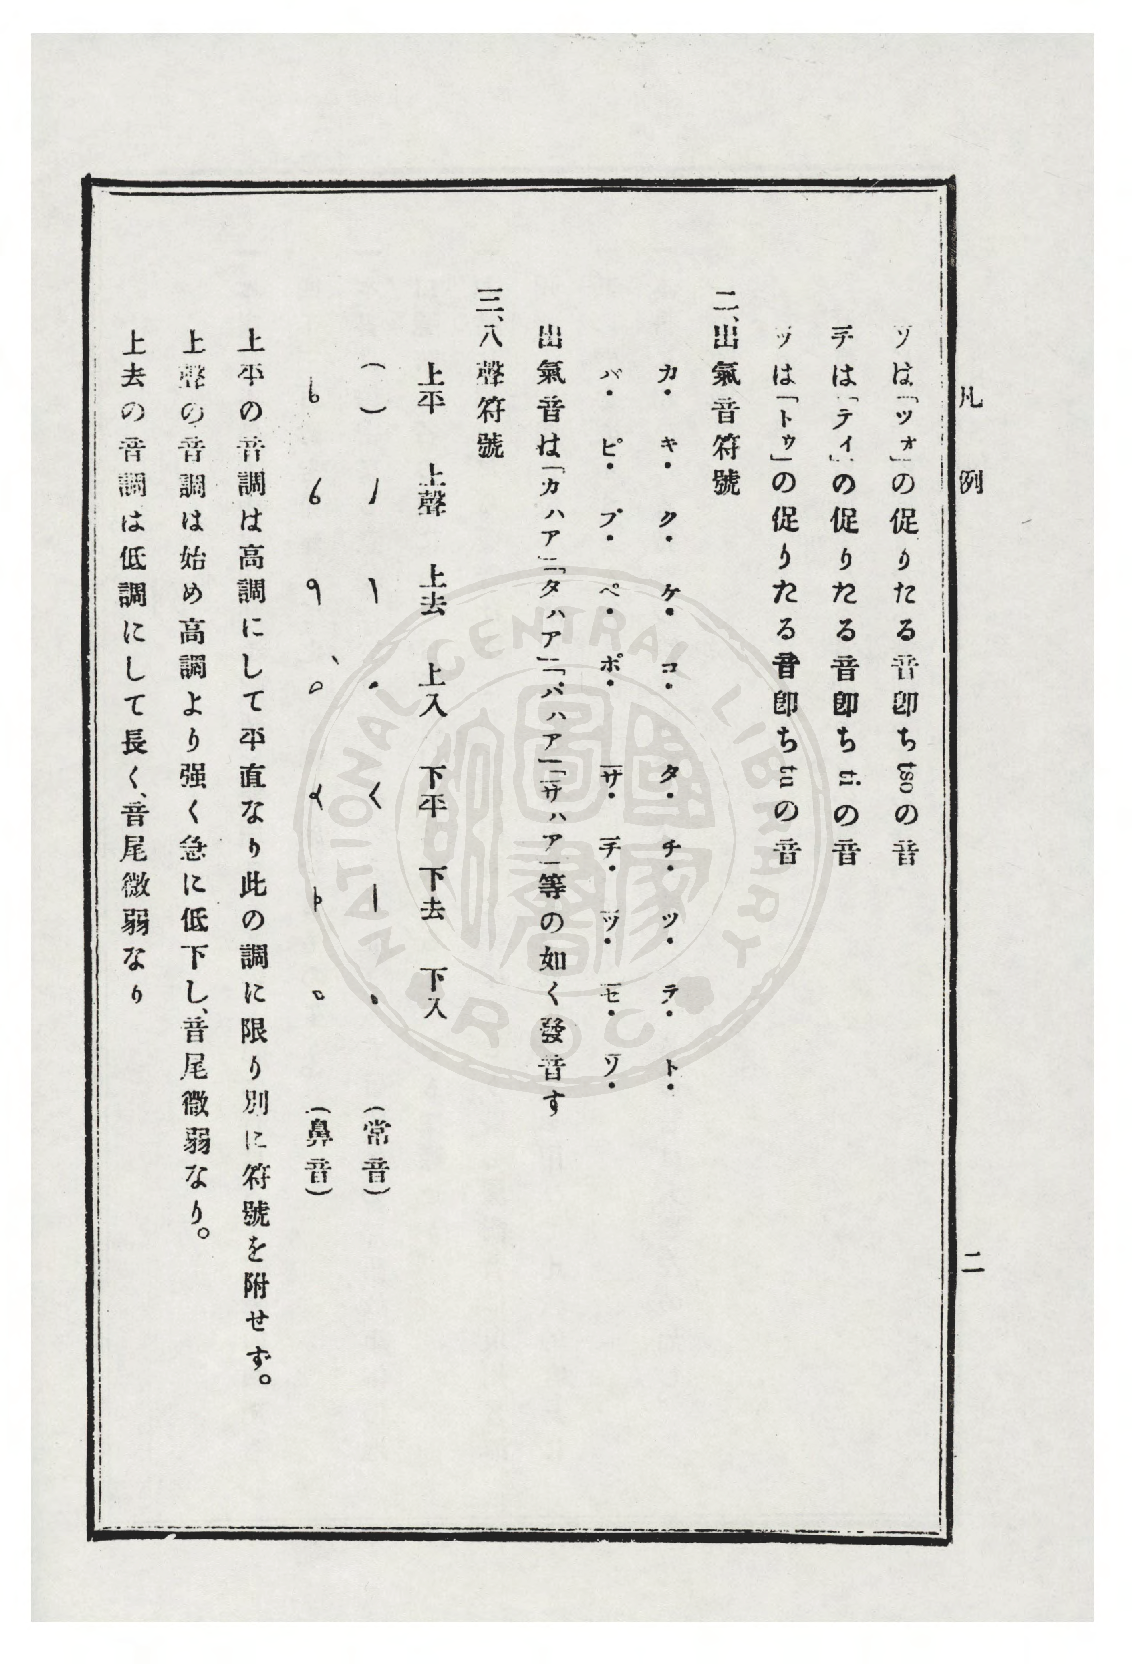 凡例
二
ソ̅は「ツォ」の促りたる音卽ちtsoの音
チ̅は「ティ」の促りたる音卽ちtiの音
ツ̅は「トゥ」の促りたる音卽ちtuの音
二、出氣音符號
カ・キ・ク・ケ・コ・タ・チ・ツ・テ・ト・
パ・ピ・プ・ペ・ポ・サ̅・チ̅・ツ̅・セ̅・ソ̅・
出氣音は「カハア」「タハア」「パハア」「サ̅ハア」等の如く發音す
三、八聲符號
上平 上聲 上去 上入 下平 下去 下入
( ) (常音)
(鼻音)
上平の音調は高調にして平直なり此の調に限り別に符號を附せず。
上聲の音調は始め高調より强く急に低下し、音尾微弱なり。
上去の音調は低調にして長く、音尾微弱なり
NATIONAL CENTRAL LIBRARY
ROC
國家圖書館